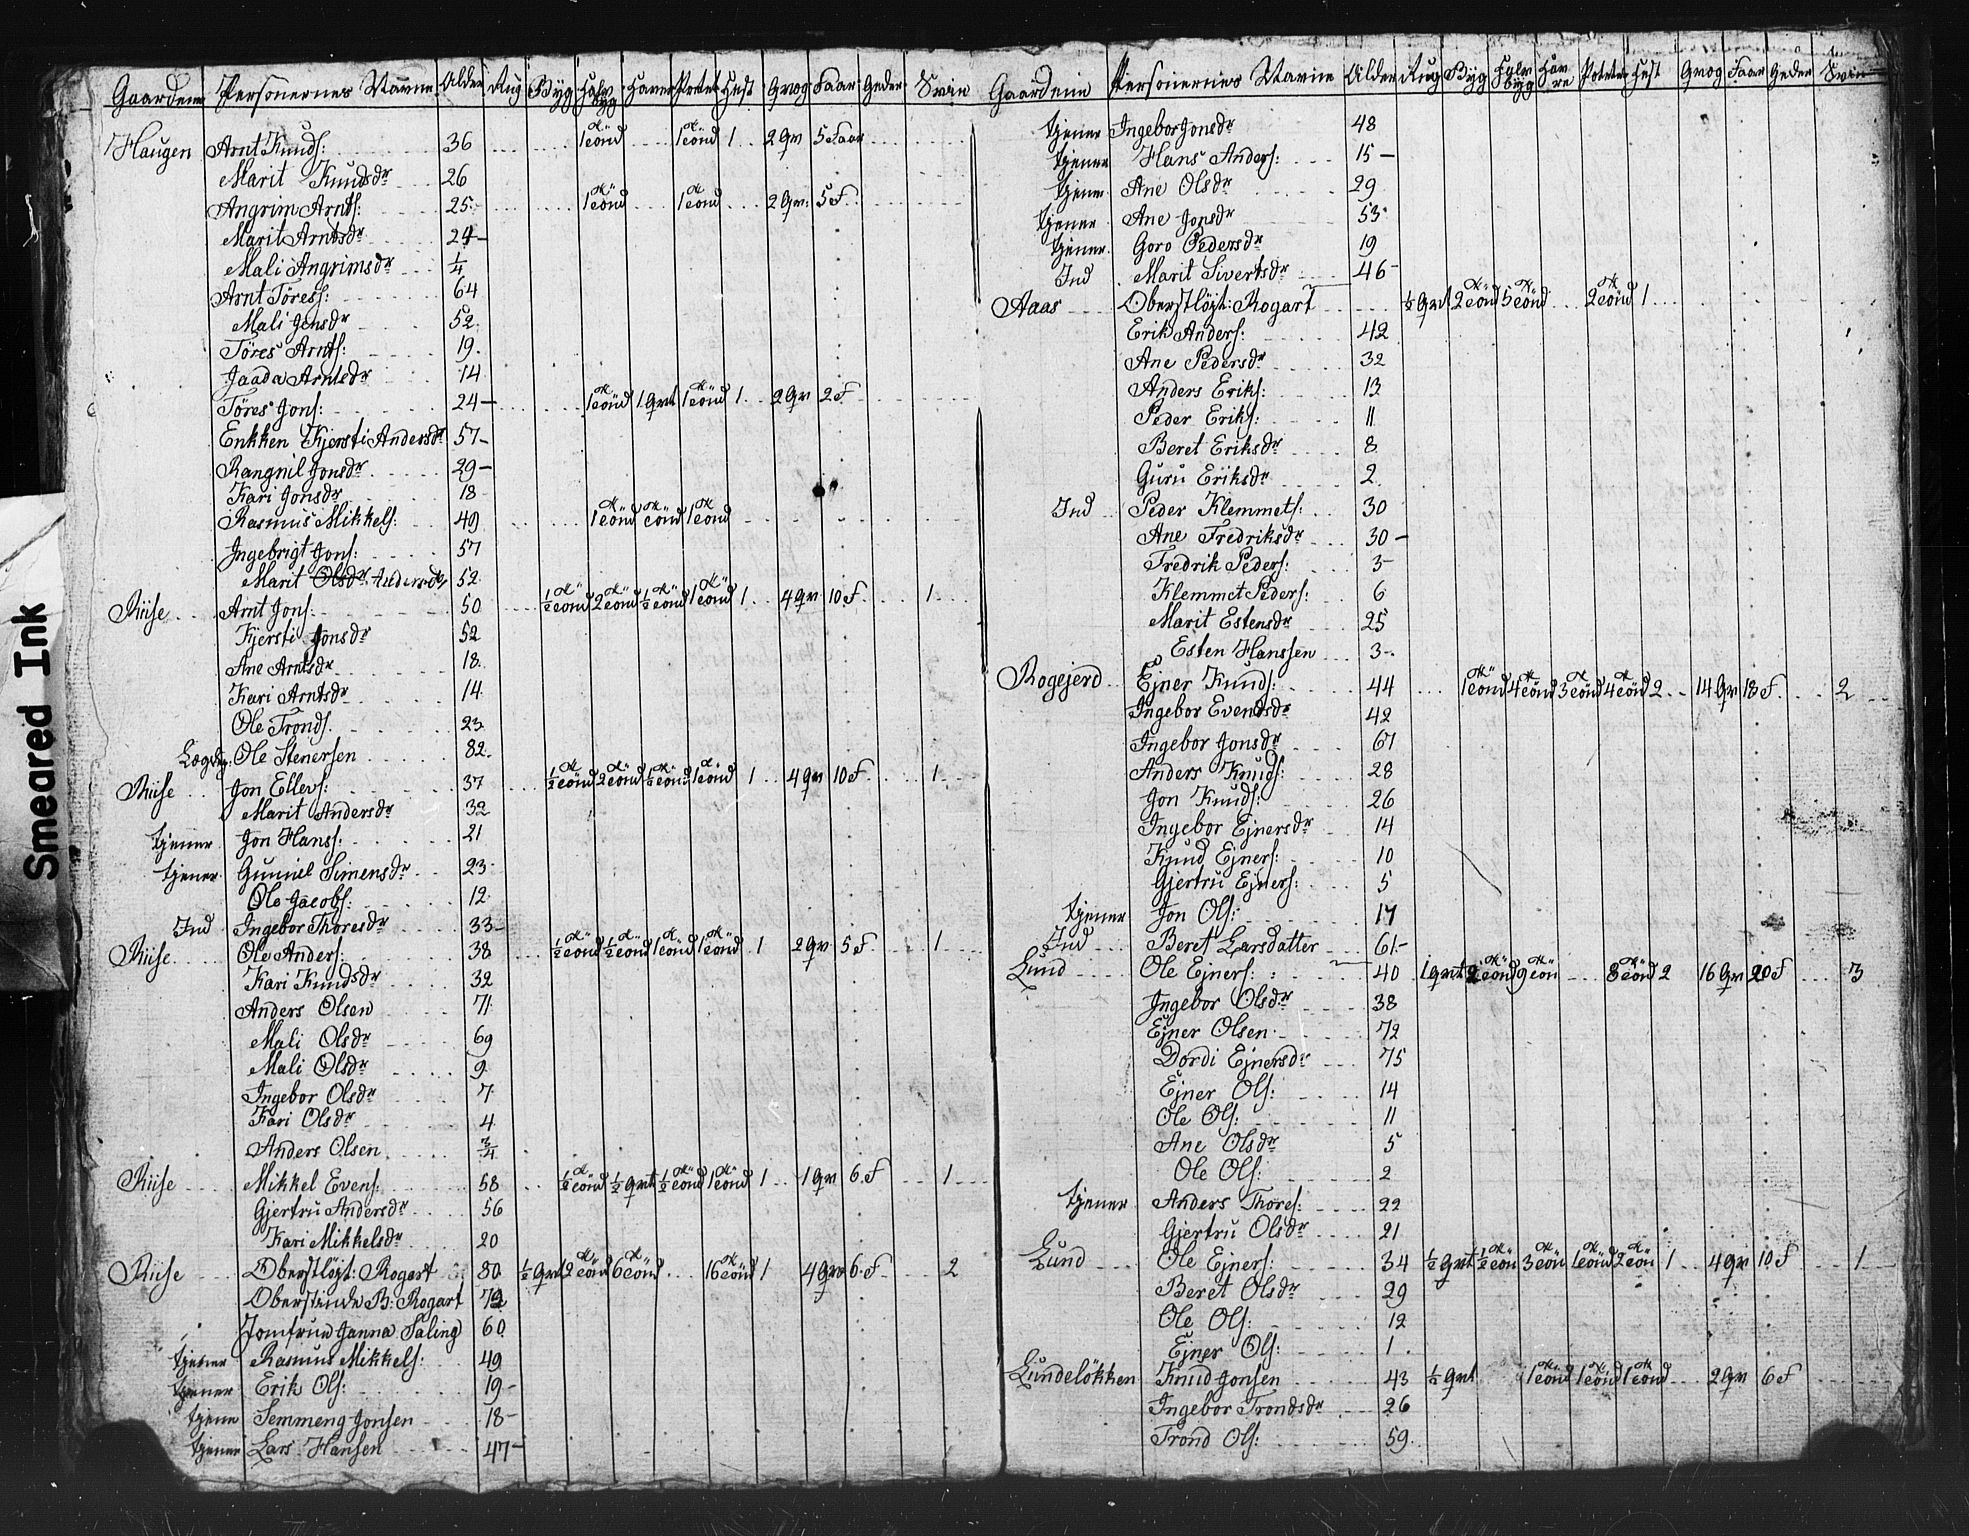 Gaardene Personernes Navne Alder Rug Byg Halv Byg Haver Potet Hest Qvæg Faar Geder Svin
Haugen Arnt Knuds: 36 1 tönd 1 tönd 1 2 qv 5 Faar
Marit Knudsdr 26
Angrim Arnts: 25 1 tönd 1 tönd 2 qv: 5 F
Marit Arntsdr 24
Mali Angrimsdr 1/4
Arnt Töress: 64
Mali Jonsdr 52
Töres Arnts: 19
Jaada Arntsdr 14
Töres Jons: 24 1 tönd 1 qrt 1 tönd 1 2 qv 2 F
Enkken Kjersti Andersdr 57
Rangnil Jonsdr 29
Kari Jonsdr 18
Rasmus Mikkels: 49 1 tönd tönd 1 tönd
Ingebrigt Jons: 57
Marit Olsdr Andersdr 52
Riise Arnt Jons: 50 1/2 tönd 2 tönd 1/2 tönd 1 tönd 1 4 qv 10 F 1
Kjersti Jonsdr 52
Ane Arntsdr 18
Kari Arntsdr 14
Ole Tronds. 23
Lægdsg: Ole Stenersen 82
Riise Jon Ellevs: 37 1/2 tönd 2 tönd 1/2 tönd 1 tönd 1 4 qv 10 F 1
Marit Andersdr 32
tjener Jon Hanss: 21
tjener Gunnil Simensdr 23
Ole Jacobs: 12
Ind Ingebor Thoresdr 33
Riise Ole Anders: 38 1/2 tönd 1/2 tönd 1 tönd 1 tönd 1 2 qv 5 F 1
Kari Knudsdr 32
Anders Olsen 71
Mali Olsdr 69
Mali Olsdr 9
Ingebor Olsdr 7
Kari Olsdr 4
Anders Olsen 3/4
Riise Mikkel Evens: 58 1/2 tönd 1/2 qrt 1/2 tönd 1 tönd 1 1 qv 6 F 1
Gjertru Andersdr 56
Kari Mikkelsdr 20
Riise Oberstlöjt: Rogart 80 1/2 qrt 2 tönd 6 tönd 16 tönd 1 4 qv 6 F 2
Oberstinde B: Rogart 72
Jomfrue Janna Saling 60
tjener Rasmus Mikkels: 49
tjener Erik Ols: 19
tjener Semmeng Jonsen 18
tjener Lars Hansen 47
Gaardene Personernes Navne Alder Rug Byg Halv Byg Havre Poteter Hest Qvæg Faar Geder Svin
tjener Ingebor Jonsdr 48
tjener Hans Anders: 15
tjener Ane Olsdr 29
tjener Ane Jonsdr 53
tjener Goro Pedersdr 19
Ind Marit Sivertsdr 46
Aaas Oberstlöjt: Rogart 1/2 qrt 2 tönd 5 tönd 2 tönd 1
Erik Anders: 42
Ane Pedersdr 32
Anders Eriks: 13
Peder Eriks: 11
Beret Eriksdr 8
Guru Eriksdr 2
Ind Peder Klemmets: 30
Ane Fredriksdr 30
Fredrik Peders: 3
Klemmet Peders: 6
Marit Estensdr 25
Esten Hanssen 3
Rogejerd Ejner Knuds: 44 1 tönd 4 tönd 3 tönd 4 tönd 2 14 qv 18 F. 2
Ingebor Evensdr 42
Ingebor Jonsdr 67
Anders Knuds: 28
Jon Knuds: 26
Ingebor Ejnersdr 14
Knud Ejners: 10
Gjertru Ejners: 5
tjener Jon Ols: 17
Ind Beret Larsdatter 61
Lund Ole Ejners: 40 1 qrt 2 tönd 9 tön 8 tönd 2 16 qv 20 F 3
Ingebor Olsdr 38
Ejner Olsen 72
Dordi Ejnersdr 75
Ejner Ols: 14
Ole Ols: 11
Ane Olsdr 5
Ole Ols: 2
tjener Anders Thores: 22
Gjertru Olsdr 21
Lund Ole Ejners: 34 1/2 qrt 1/2 tön 3 tön 1 tönd 2 tön 1 4 qv 10 F 1
Beret Olsdr 29
Ole Ols: 12
Ejner Ols: 1
Lundelökken Knud Jonsen 43 1/2 qrt 1 tönd 1 tönd 1 tönd 2 qv 6 F
Ingebor Trondsdr 26
Trond Ols: 59
Smeared Ink